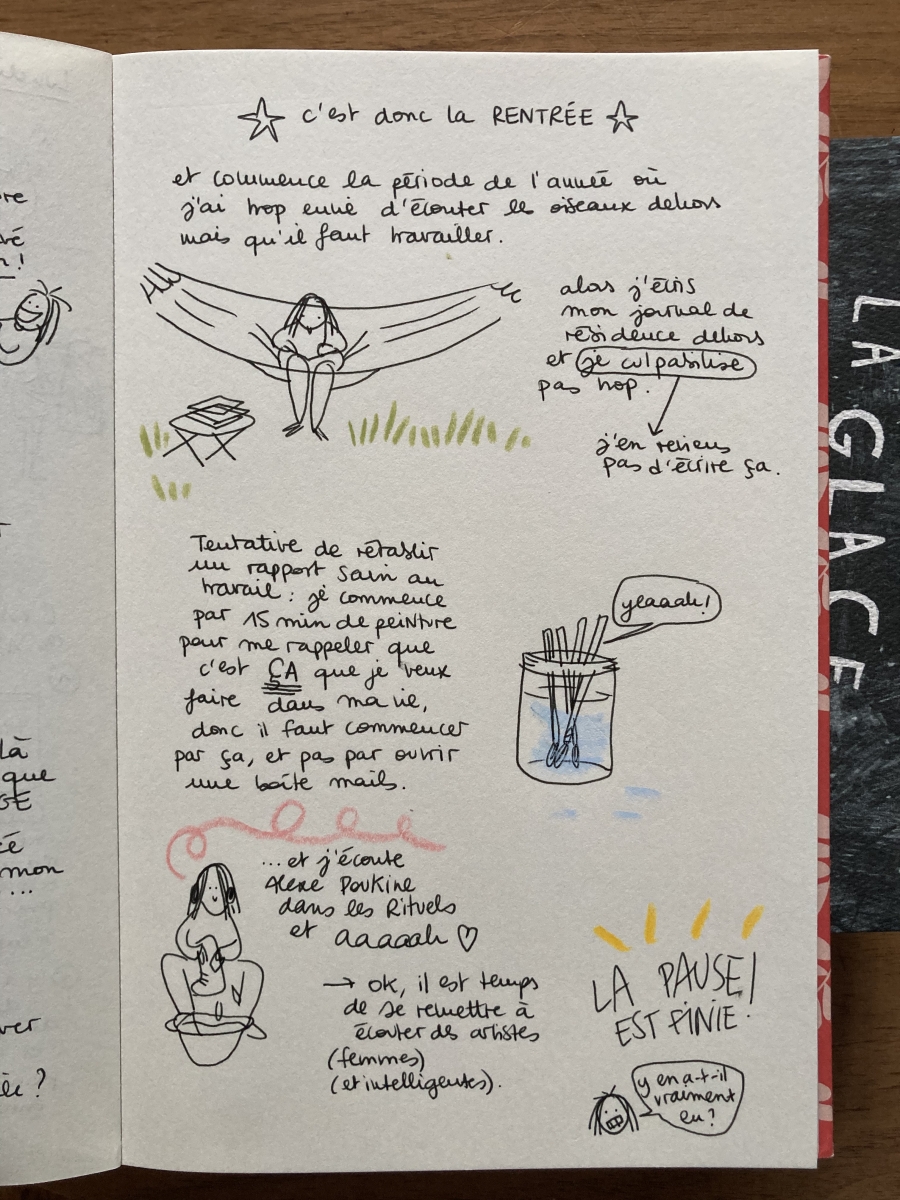 ☆ c'est donc la RENTRÉE ☆
et commence la période de l'année où
j'ai trop envie d'écouter les oiseaux dehors
mais qu'il faut travailler.
alors j'écris
mon journal de
résidence dehors
et je culpabilise
pas trop.
j'en reviens
pas d'écrire ça.
Tentative de rétablir
un rapport sain au
travail : je commence
par 15 min de peinture
pour me rappeler que
c'est ÇA que je veux
faire dans ma vie,
donc il faut commencer
par ça, et pas par ouvrir
une boîte mails.
yeaaah!
...et j'écoute
Alexe Poukine
dans les Rituels
et aaaaah ♡
→ ok, il est temps
de se remettre à
écouter des artistes
(femmes)
(et intelligentes).
LA PAUSE
EST FINIE !
y en a-t-il
vraiment
eu ?
re
n !
là
que
GE
cé
mon
...
ver
?
LA GLACE